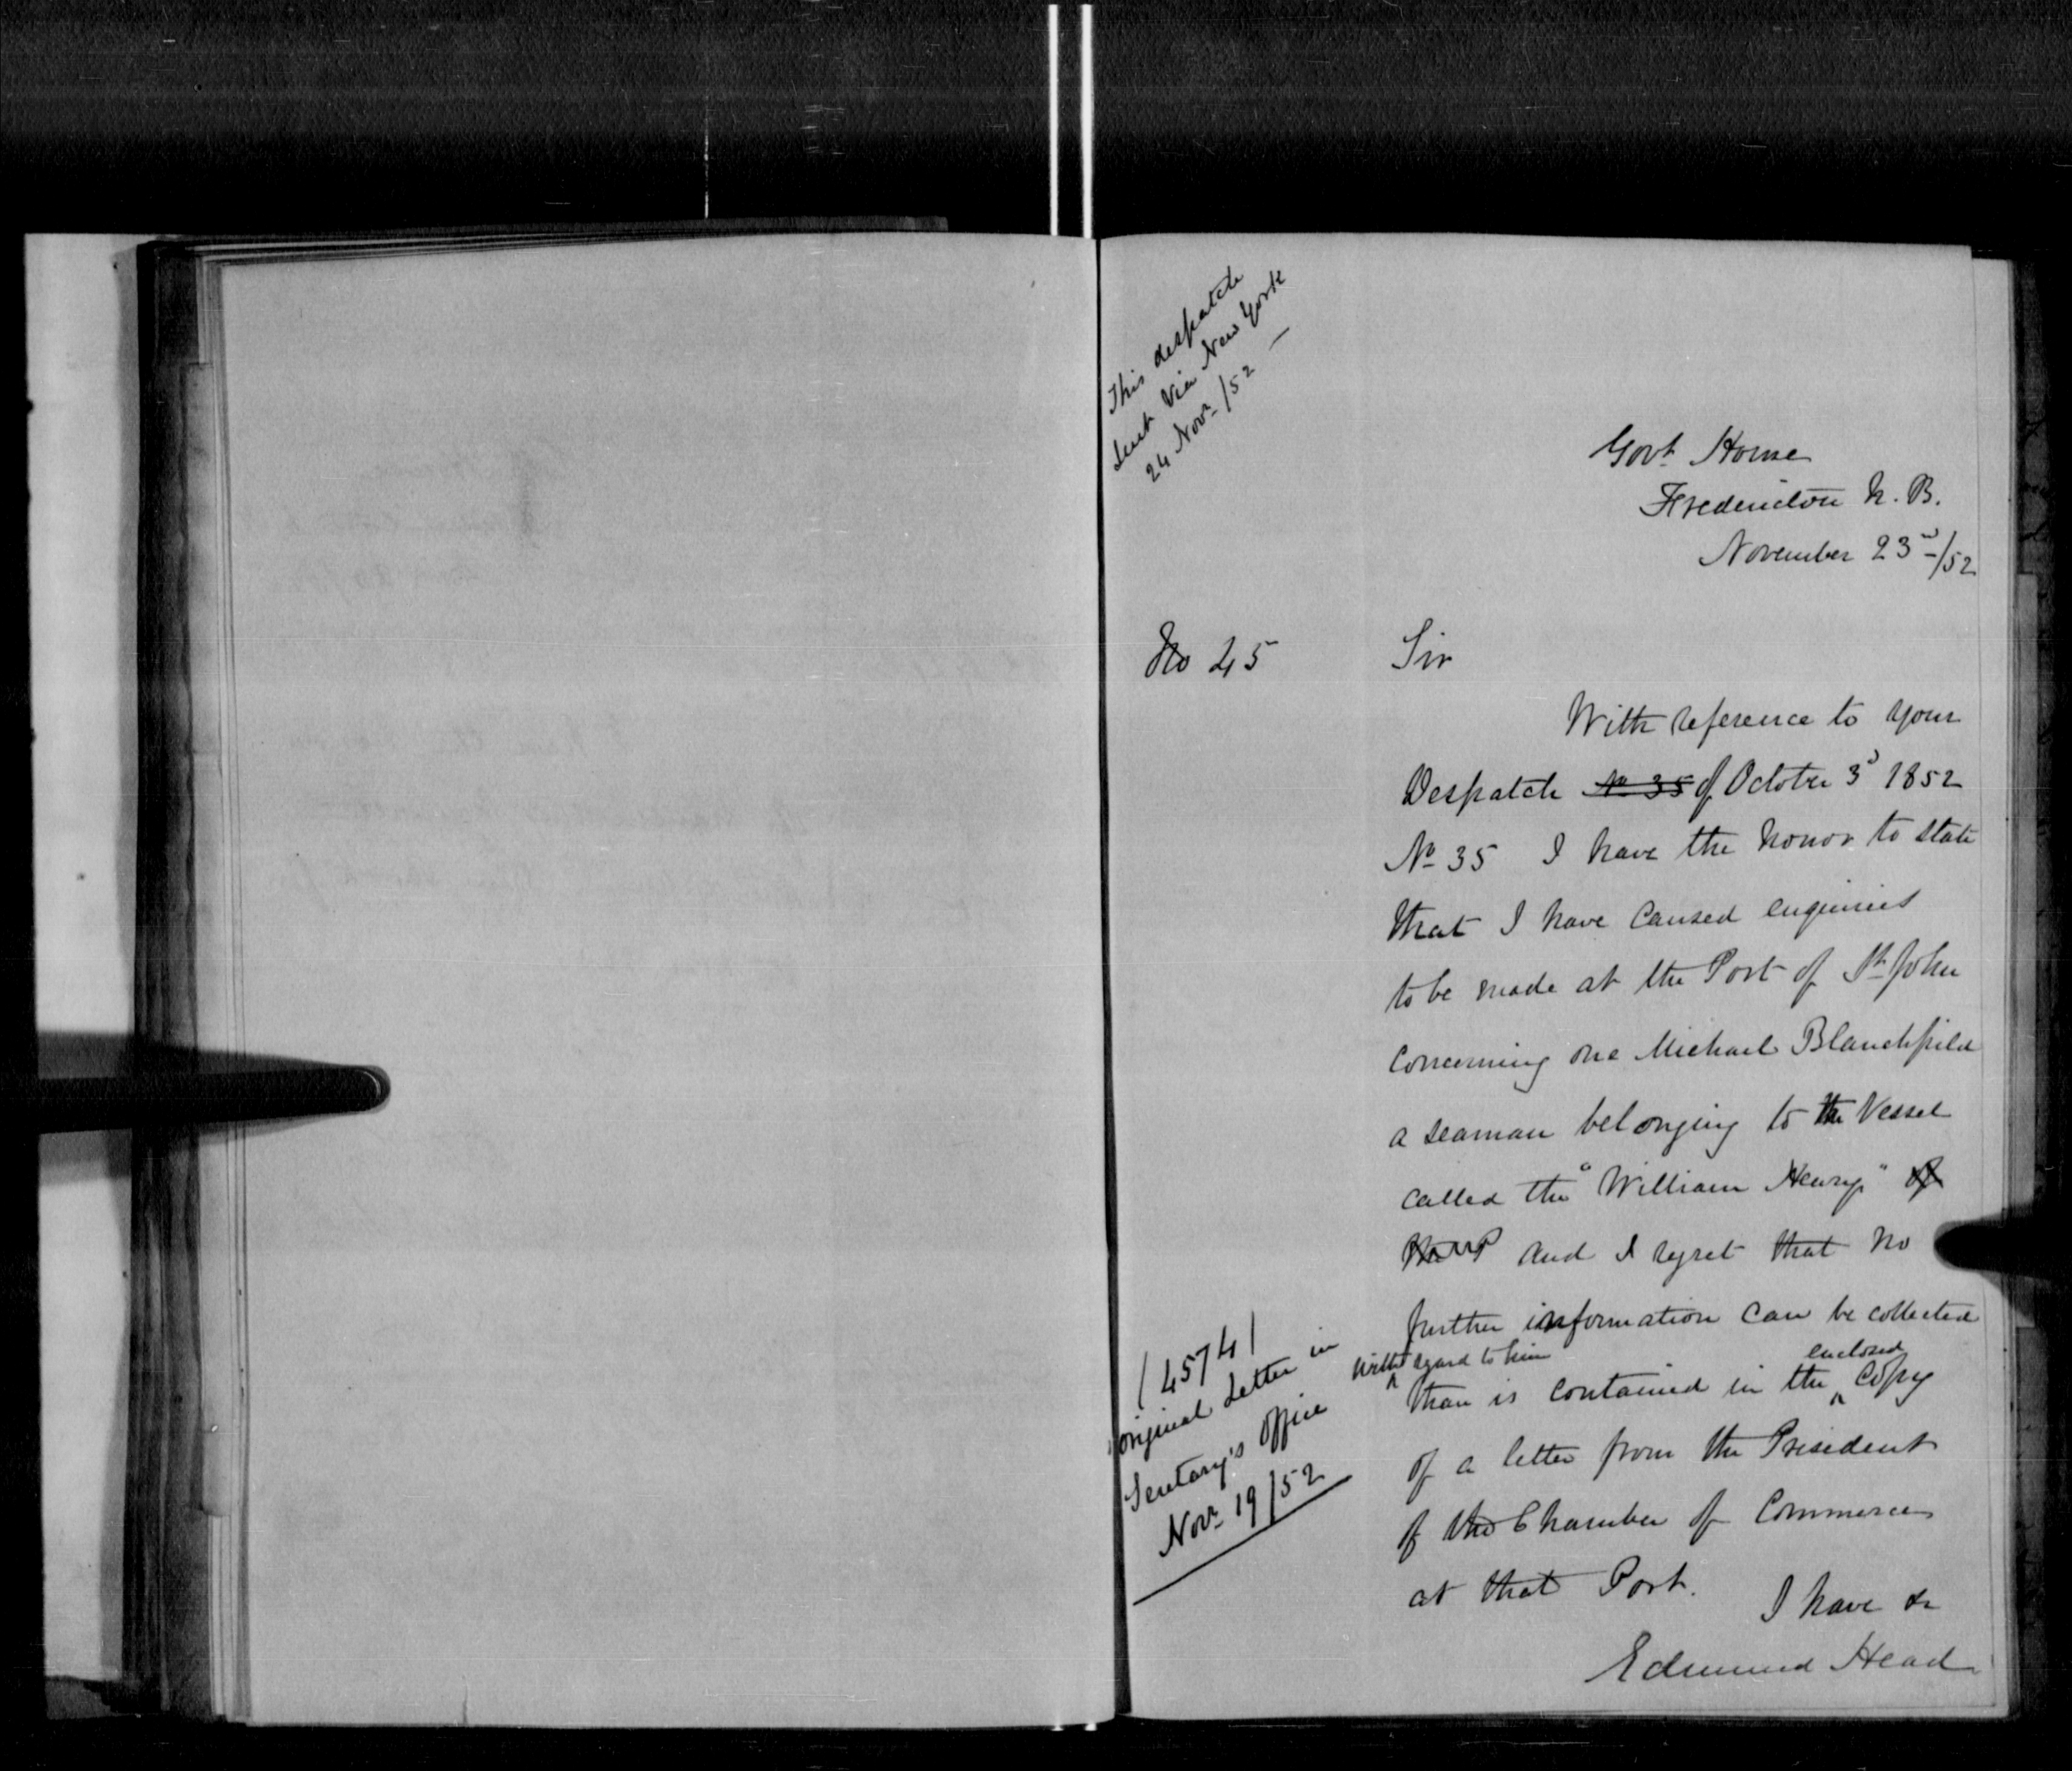 This despatch
sent via New York
24 Novr /52 —
Govt House
Fredericton N. B.
November 23d/52
No 45
Sir
With reference to your
Despatch No 35 of October 3d 1852
No 35 I have the honor to state
that I have caused enquiries
to be made at the Port of St John
concerning one Michael Blanchfield
a seaman belonging to the Vessel
called the "William Henry" of
and I regret that no
further information can be collected
with regard to him
than is contained in the enclosed Copy
of a letter from the President
of the Chamber of Commerce
at that Port.
I have &c
Edmund Head
(4574)
original letter in
Secretary's Office
Novr 19/52